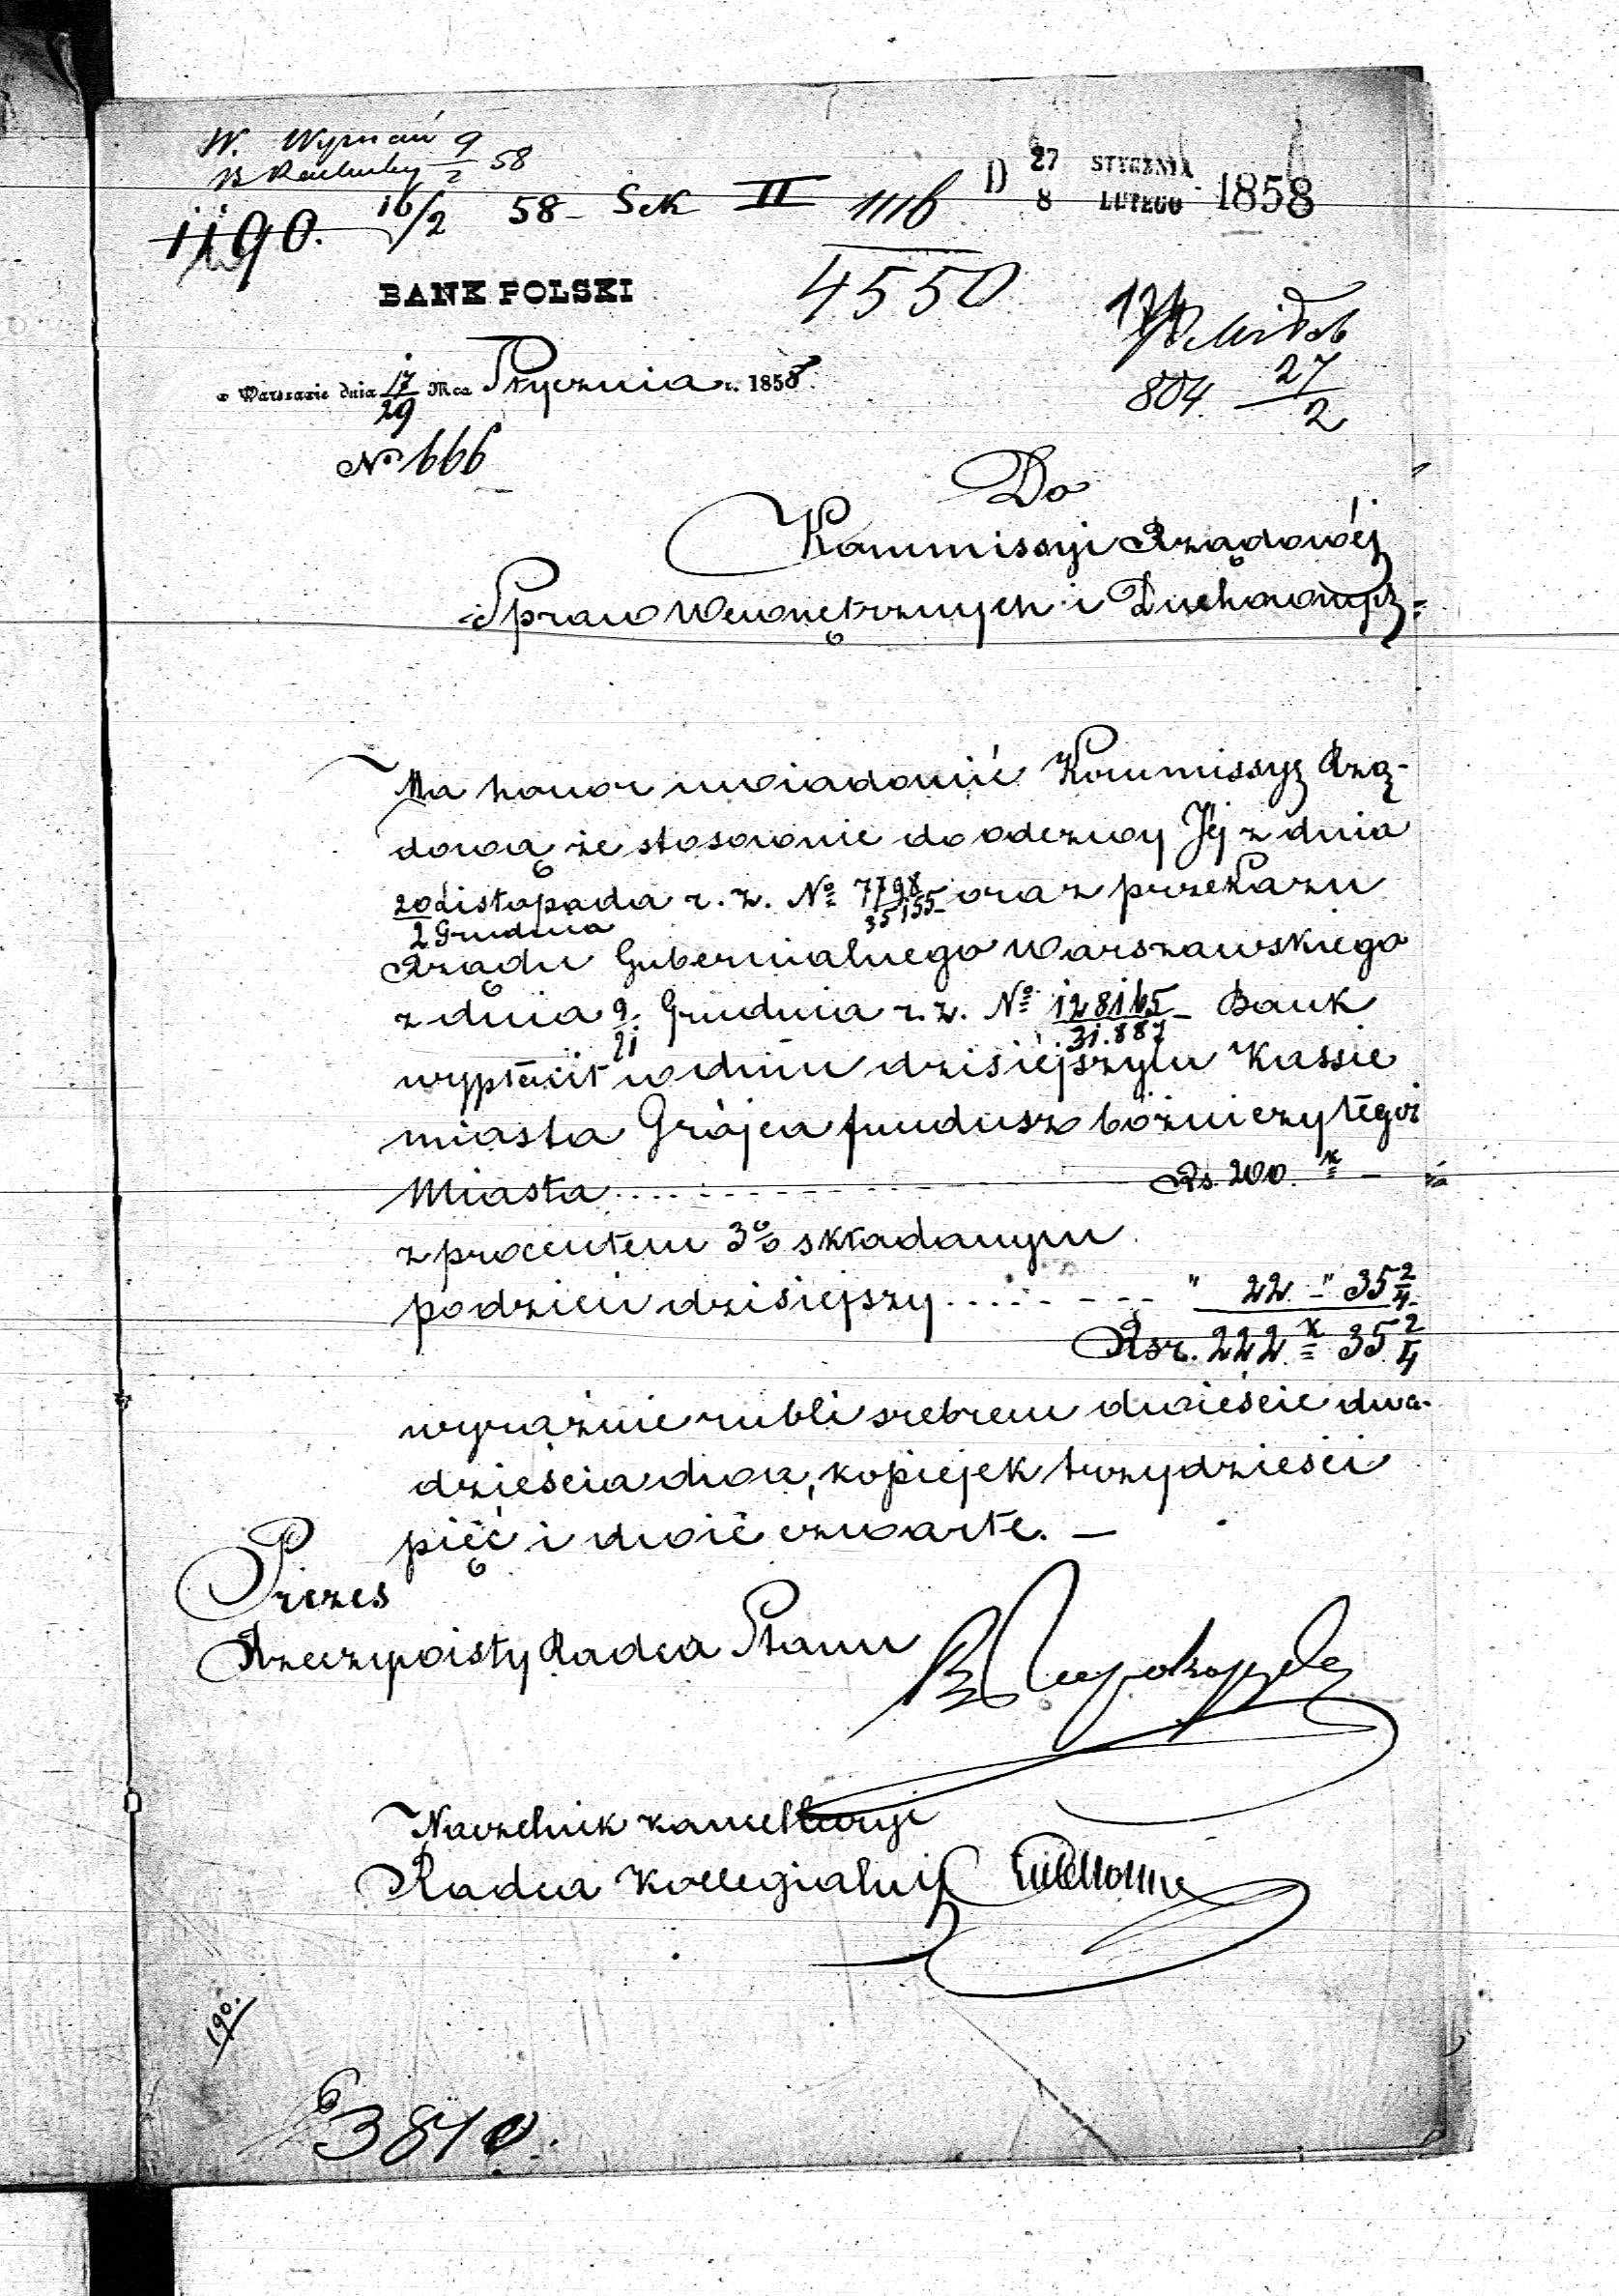 W.
9/2 58
1190. 16/2 58 - Sek II 1116
4550
D 27 STYCZNIA
8 LUTEGO 1858
BANK POLSKI
804. 27/2
w Warszawie dnia 17/29 Mca Stycznia r. 1858.
No 666
Do
Kommissyi Rządowéj
Spraw Wewnętrznych i Duchownych:
Ma honor uwiadomić Kommissyę Rzą-
dową że stosownie do odezwy Jéj z dnia
20 Listopada / 2 Grudnia r. z. No 7798/35155 oraz przekazu
Rządu Gubernialnego Warszawskiego
z dnia 9/21 Grudnia r. z. No 128165/31.887 - Bank
wypłacił w dniu dzisiejszym Kassie
miasta Grójca fundusz bóżniczy tegoż
Miasta .......... Rs. 200. k —
z procentem 3% składanym
po dzień dzisiejszy ........ " 22 - " 35 2/4
Rsr. 222. k 35 2/4
wyraźnie rubli srebrem dwieście dwa-
dzieścia dwa, kopiejek trzydzieści
pięć i dwie czwarte. —
Prezes
Rzeczywisty Radca Stanu
Naczelnik Kancellaryi
Radca Kollegialny
190.
3840.